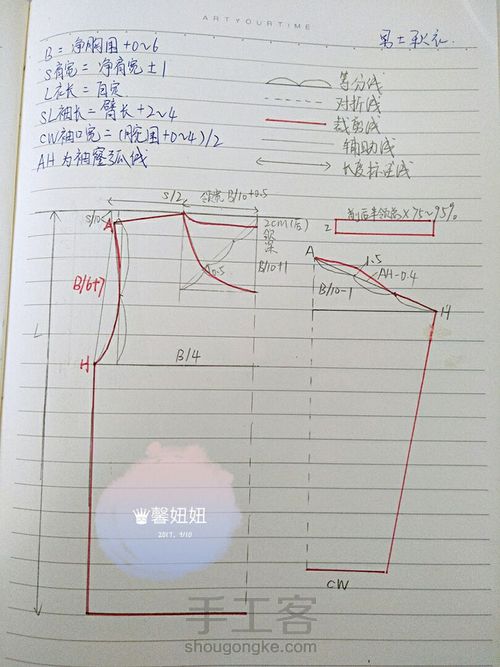 ARTYOURTIME
男士秋衣.
B = 净胸围 +0~6
S肩宽 = 净肩宽 ±1
L衣长 = 自定
SL袖长 = 臂长 +2~4
CW袖口宽 = (腕围+0~4)/2
AH为袖窿弧线
等分线
对折线
裁剪线
辅助线
长度标注线
S/2
领宽 B/10+0.5
S/10
A
2cm(后)
领深
B/10+1
0.5
前后半领窝×75~95%
2
A
1.5
AH-0.4
B/10-1
H
B/6+7
L
H
B/4
馨妞妞
2017. 1/10
CW
手工客
shougongke.com